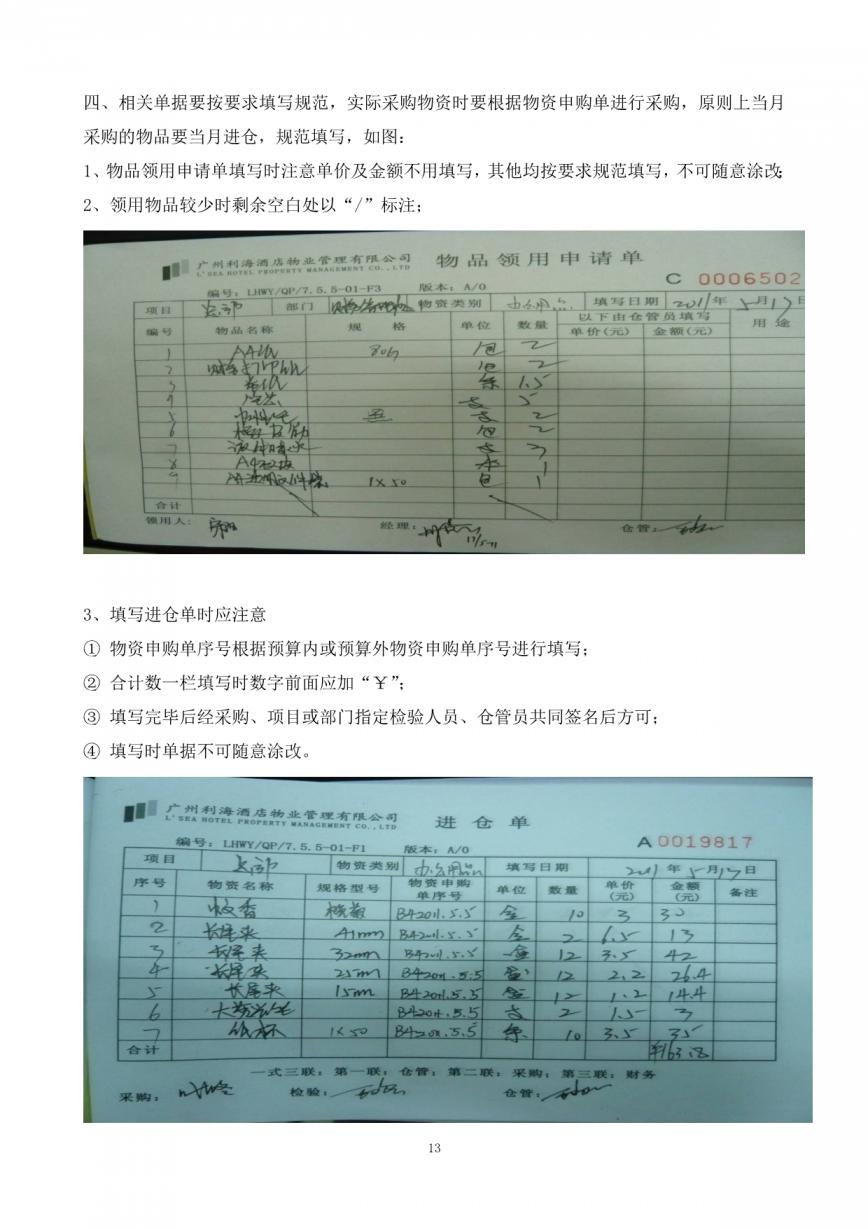 四、相关单据要按要求填写规范，实际采购物资时要根据物资申购单进行采购，原则上当月
采购的物品要当月进仓，规范填写，如图：
1、物品领用申请单填写时注意单价及金额不用填写，其他均按要求规范填写，不可随意涂改；
2、领用物品较少时剩余空白处以“/”标注；
广州利海酒店物业管理有限公司 物品领用申请单
L'SEA HOTEL PROPERTY MANAGEMENT CO.,LTD
C 0006502
编号：LHWY/QP/7.5.5-01-F3 版本：A/0
项目 总部 部门 物资类别 办公用品 填写日期 2011年5月17日
编号 物品名称 规格 单位 数量 以下由仓管员填写 用途
单价(元) 金额(元)
1 A4纸 80g 包 2
2 包 2
3 条 1.5
4 支 5
5 支 2
6 包 2
7 支 3
8 A4 本 1
9 1×50 包 1
合计
领用人： 经理： 仓管：
17/5-11
3、填写进仓单时应注意
① 物资申购单序号根据预算内或预算外物资申购单序号进行填写；
② 合计数一栏填写时数字前面应加“￥”；
③ 填写完毕后经采购、项目或部门指定检验人员、仓管员共同签名后方可；
④ 填写时单据不可随意涂改。
广州利海酒店物业管理有限公司 进仓单
L'SEA HOTEL PROPERTY MANAGEMENT CO.,LTD
A 0019817
编号：LHWY/QP/7.5.5-01-F1 版本：A/0
项目 总部 物资类别 办公用品 填写日期 2011年5月17日
序号 物资名称 规格型号 物资申购单序号 单位 数量 单价(元) 金额(元) 备注
1 蚊香 B42011.5.5 盒 10 3 30
2 长尾夹 41mm B42011.5.5 盒 2 6.5 13
3 长尾夹 32mm B42011.5.5 盒 12 3.5 42
4 长尾夹 25mm B42011.5.5 盒 12 2.2 26.4
5 长尾夹 15mm B42011.5.5 盒 12 1.2 14.4
6 B42011.5.5 支 2 1.5 3
7 纸杯 1×50 B42011.5.5 条 10 3.5 35
合计 ¥163.8
一式三联：第一联：仓管；第二联：采购；第三联：财务
采购： 检验： 仓管：
13